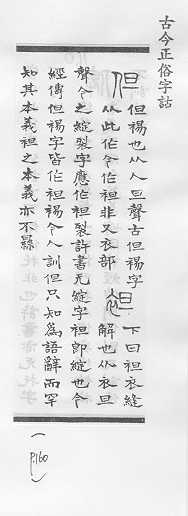 古今正俗字詁
但
但裼也从人旦聲古但裼字
从此作今作袒非又衣部
袒
下曰袒衣縫
解也从衣旦
聲今之綻裂字應作袒裂許書无綻字袒即綻也今
經傳但裼字皆作袒裼今人訓但只知為語辭而罕
知其本義袒之本義亦不
(p.160)